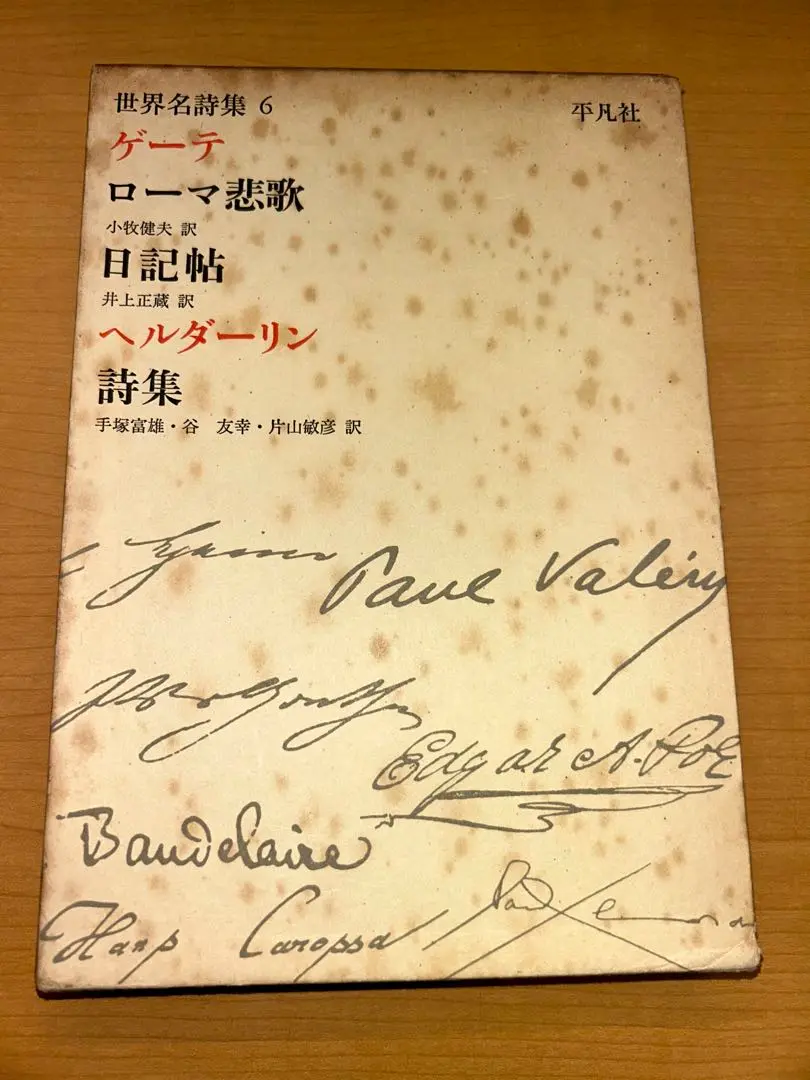 世界名詩集 6
平凡社
ゲーテ
ローマ悲歌
小牧健夫 訳
日記帖
井上正蔵 訳
ヘルダーリン
詩集
手塚富雄・谷　友幸・片山敏彦 訳
Paul Valéry
Edgar A. Poe
Baudelaire
Hans Carossa